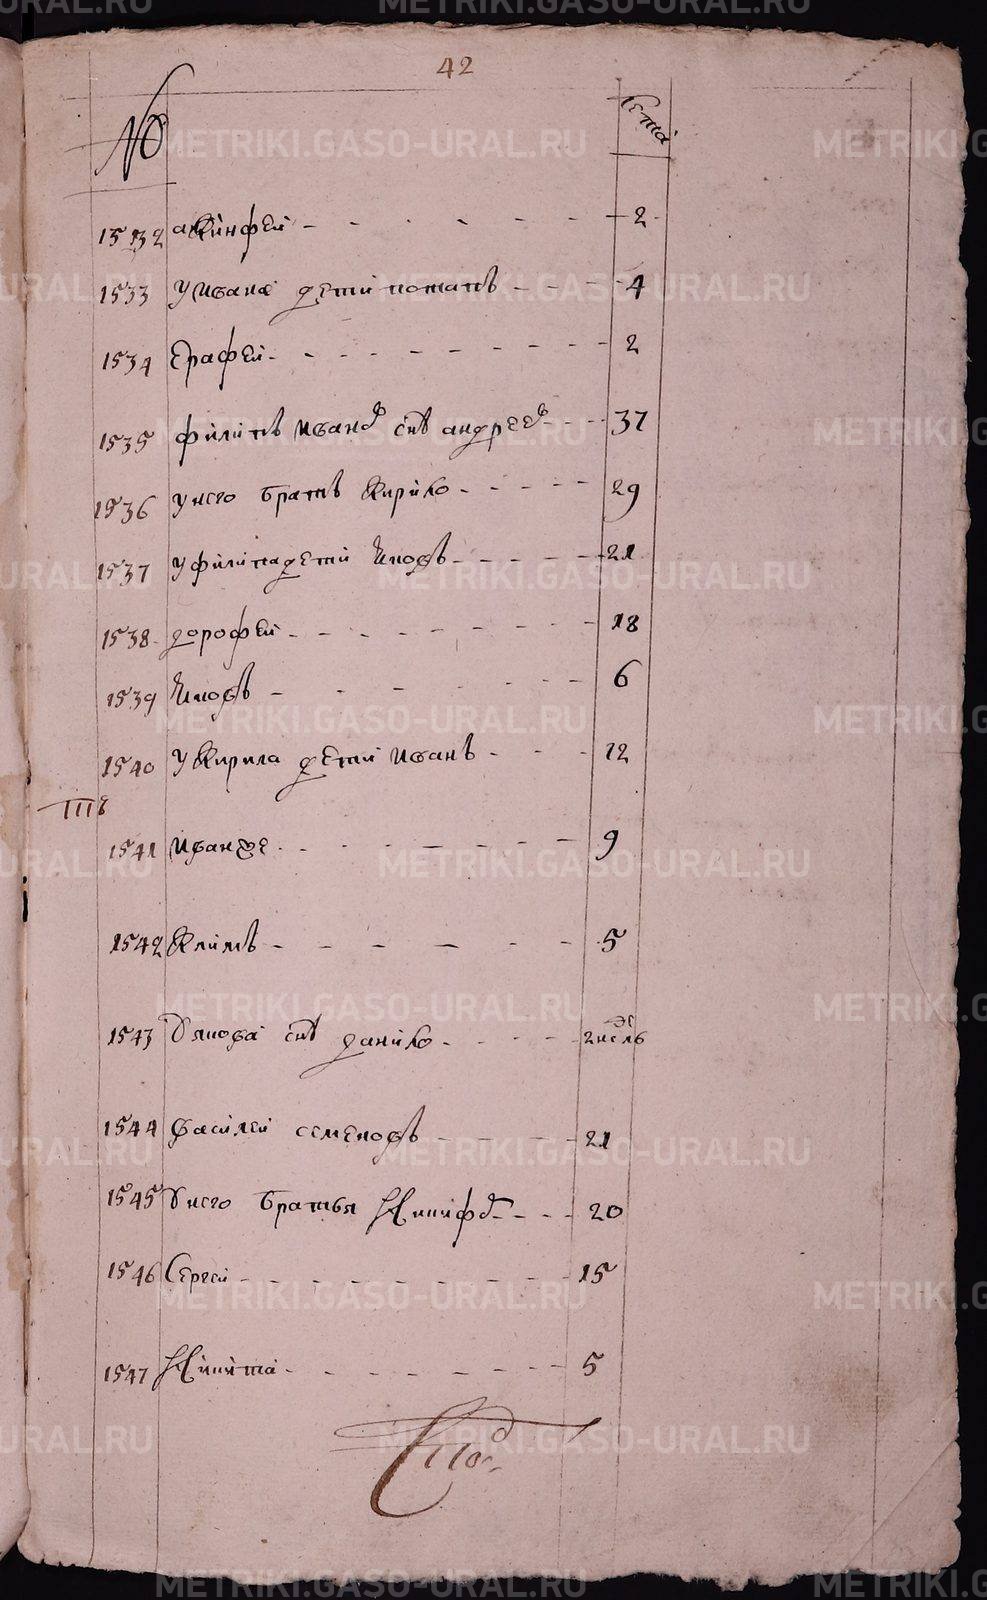 42
№ Лета
1532 акинфей 2
1533 у ивана дети потапъ 4
1534 Ерафей 2
1535 филипъ иванов снъ андреев 37
1536 у него братъ кирило 29
1537 у филипа дети яковъ 21
1538 дорофей 18
1539 яковъ 6
1540 у кирила дети иванъ 12
1541 иван же 9
1542 климъ 5
1543 У якова снъ данило 2 недель
1544 василей семеновъ 21
1545 У него братья никифор 20
1546 Сергей 15
1547 никита 5
METRIKI.GASO-URAL.RU